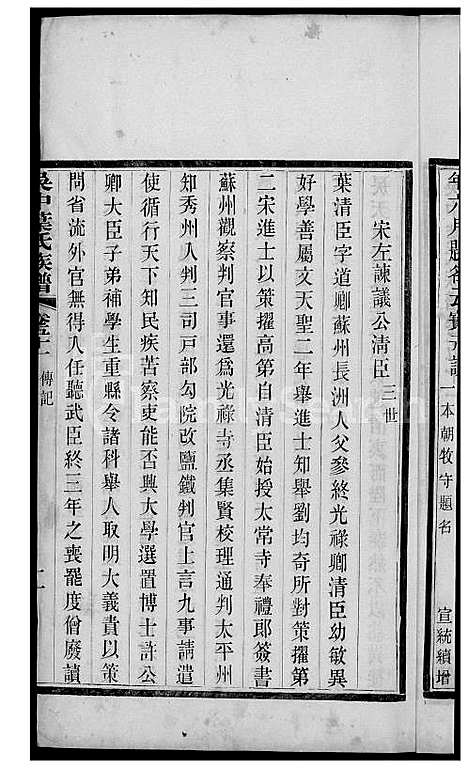 一本朝牧守題名
宣統續增
宋左諫議公清臣三世
葉清臣字道卿蘇州長洲人父參終光祿卿清臣幼敏異
好學善屬文天聖二年舉進士知舉劉均奇所對策擢第
二宋進士以策擢高第自清臣始授太常寺奉禮郎簽書
蘇州觀察判官事還爲光祿寺丞集賢校理通判太平州
知秀州入判三司戶部勾院改鹽鐵判官上言九事請遣
使循行天下知民疾苦察吏能否興大學選置博士許公
卿大臣子弟補學生重縣令諸科舉人取明大義責以策
問省流外官無得入任聽武臣終三年之喪罷度僧廢讀
吳中葉氏族譜 卷五十一 傳記 二